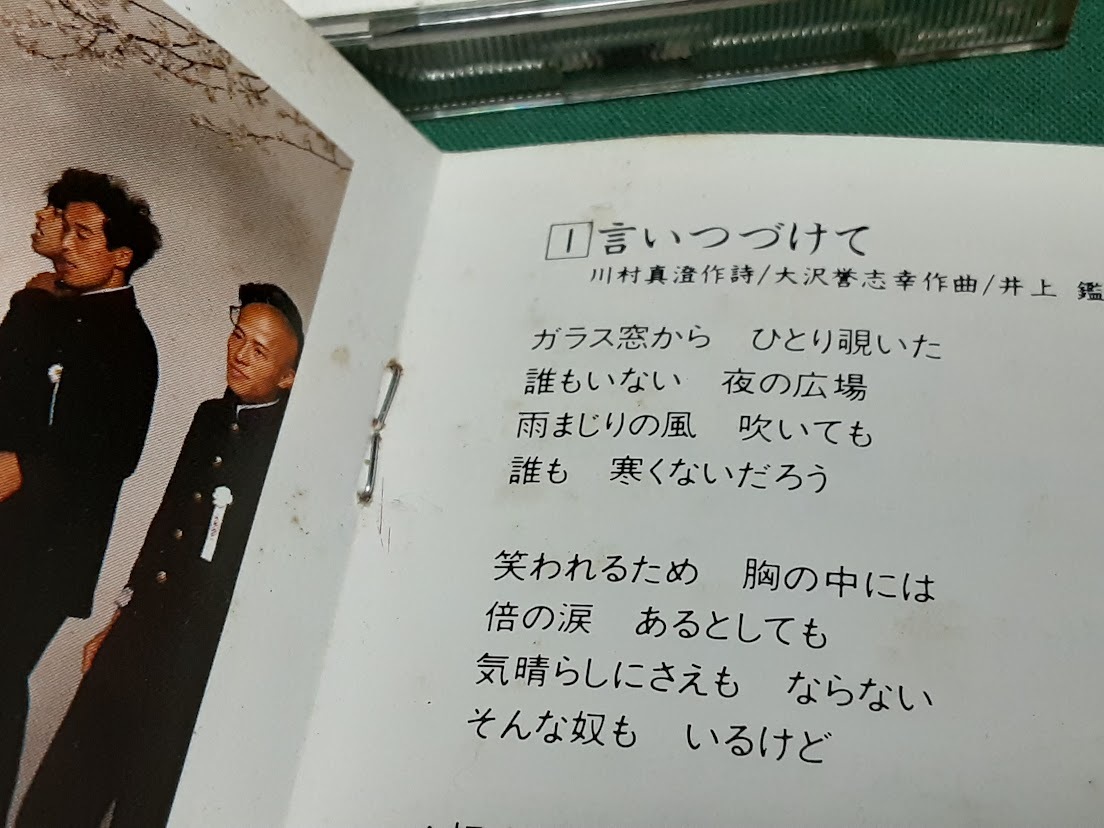 1 言いつづけて
川村真澄作詩/大沢誉志幸作曲/井上 鑑
ガラス窓から ひとり覗いた
誰もいない 夜の広場
雨まじりの風 吹いても
誰も 寒くないだろう
笑われるため 胸の中には
倍の涙 あるとしても
気晴らしにさえも ならない
そんな奴も いるけど